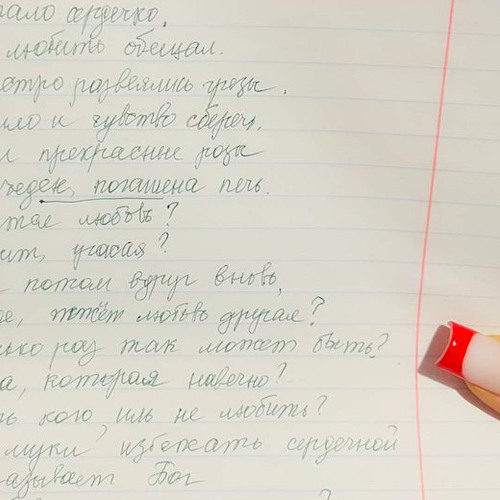 ало сердечко,
любить обещал.
стро развеялись грозы,
ило и чувство сберечь,
и прекрасные розы
ъеден, погашена печь.
тое любовь?
ит, угасая?
потом вдруг вновь,
ое, может любовь другая?
ько раз так может быть?
а, которая навечно?
ь кого, иль не любить?
муки избежать сердечной
азывает Бог